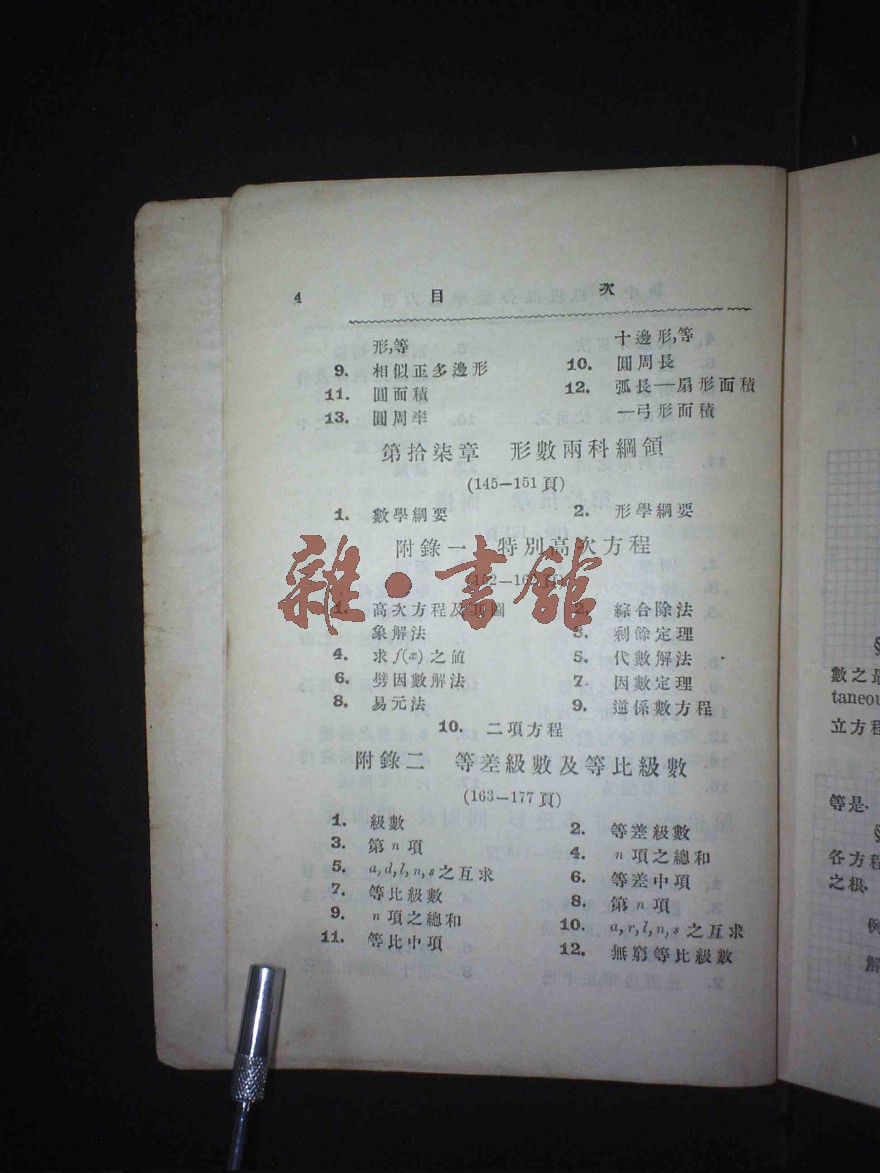 4 目 次
形,等 十邊形,等
9. 相似正多邊形 10. 圓周長
11. 圓面積 12. 弧長—扇形面積
13. 圓周率 —弓形面積
第拾柒章 形數兩科綱領
(145—151頁)
1. 數學綱要 2. 形學綱要
附錄一 特別高次方程
頁)
雜·書館
1. 高次方程及其圖 2. 綜合除法
象解法 3. 剩餘定理
4. 求 f(x) 之値 5. 代數解法
6. 劈因數解法 7. 因數定理
8. 易元法 9. 逆係數方程
10. 二項方程
附錄二 等差級數及等比級數
(163—177頁)
1. 級數 2. 等差級數
3. 第 n 項 4. n 項之總和
5. a,d,l,n,s 之互求 6. 等差中項
7. 等比級數 8. 第 n 項
9. n 項之總和 10. a,r,l,n,s 之互求
11. 等比中項 12. 無窮等比級數
§
數之最
taneou
立方程
等是
§
各方程
之根
例
解